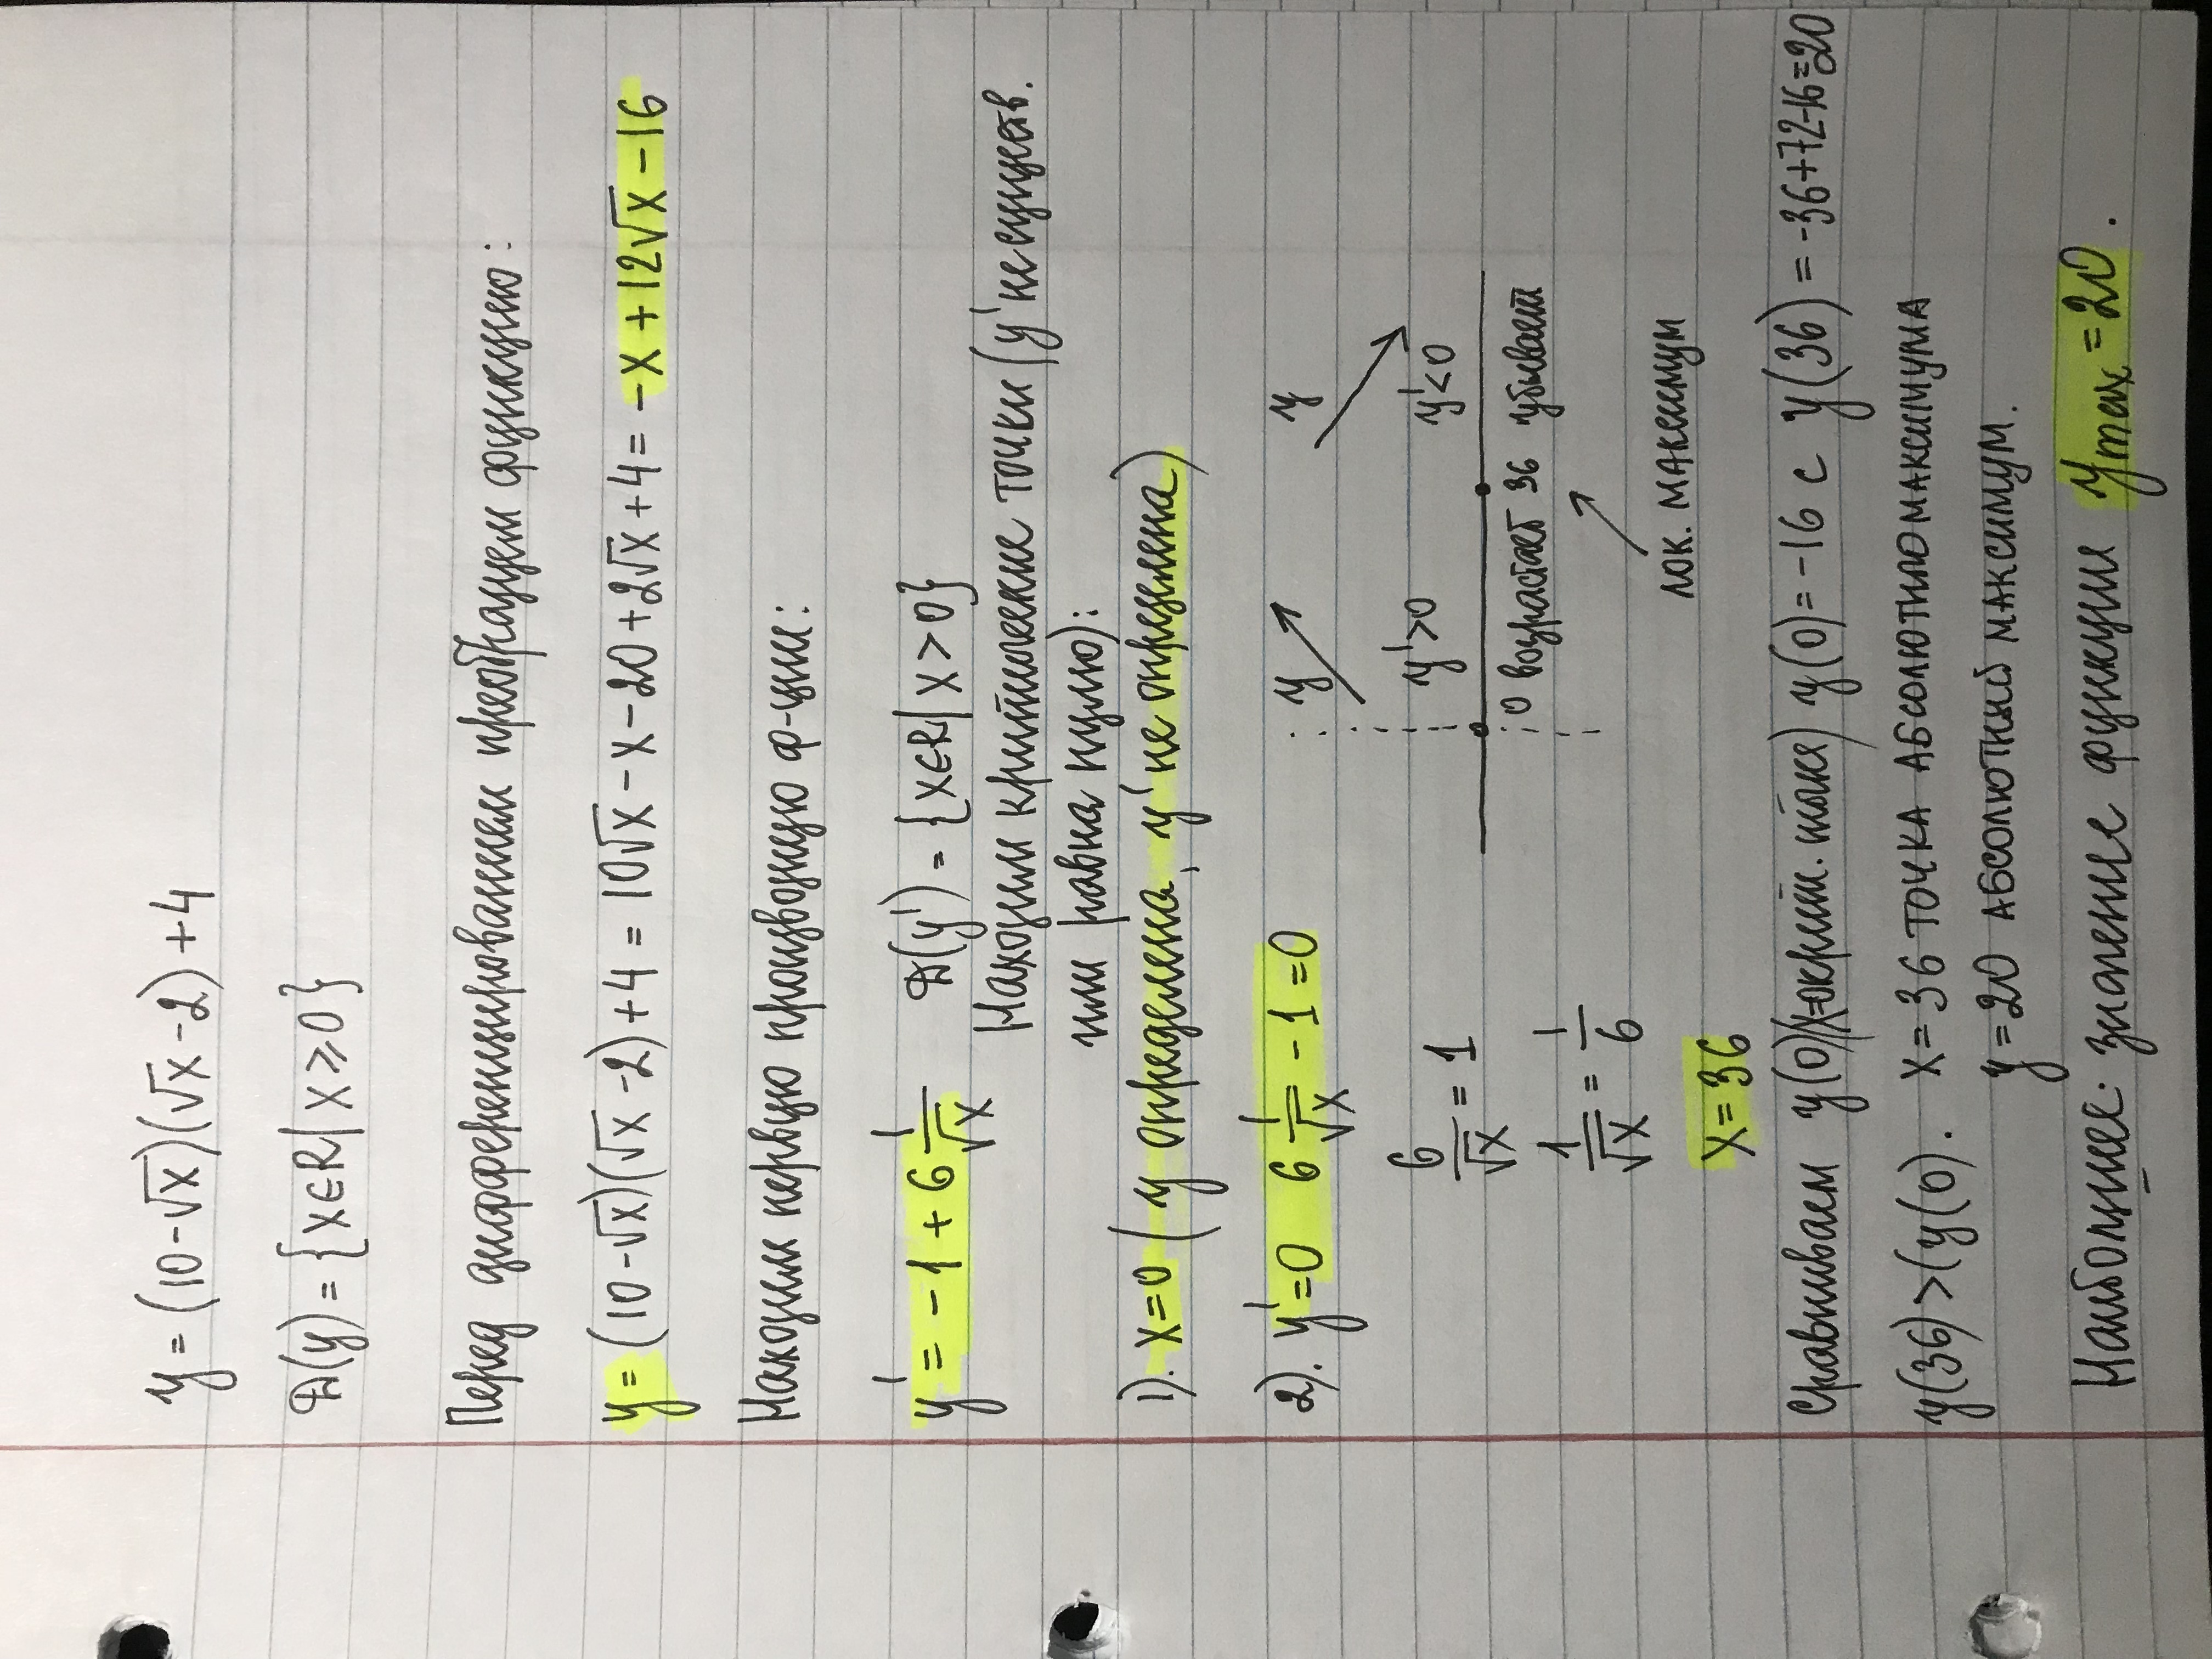 y = (10-√x)(√x-2)+4
D(y) = {x∈R | x ⩾ 0}
Перед дифференцированием преобразуем функцию:
y = (10-√x)(√x-2)+4 = 10√x - x - 20 + 2√x + 4 = -x + 12√x - 16
Находим первую производную ф-ции:
y' = -1 + 6 1/√x D(y') = {x∈R | x > 0}
Находим критические точки (y' не существ.
или равна нулю):
1). x=0 (y определена, y' не определена)
2). y'=0 6 1/√x - 1 = 0
y y
6/√x = 1 y'>0 y'<0
1/√x = 1/6 0 возрастает 36 убывает
x = 36 лок. максимум
Сравниваем y(0) y(0) = -16 с y(36) = -36+72-16=20
y(36) > (y(0). x = 36 точка абсолютного максимума
y = 20 абсолютный максимум.
Наибольшее значение функции y max = 20.